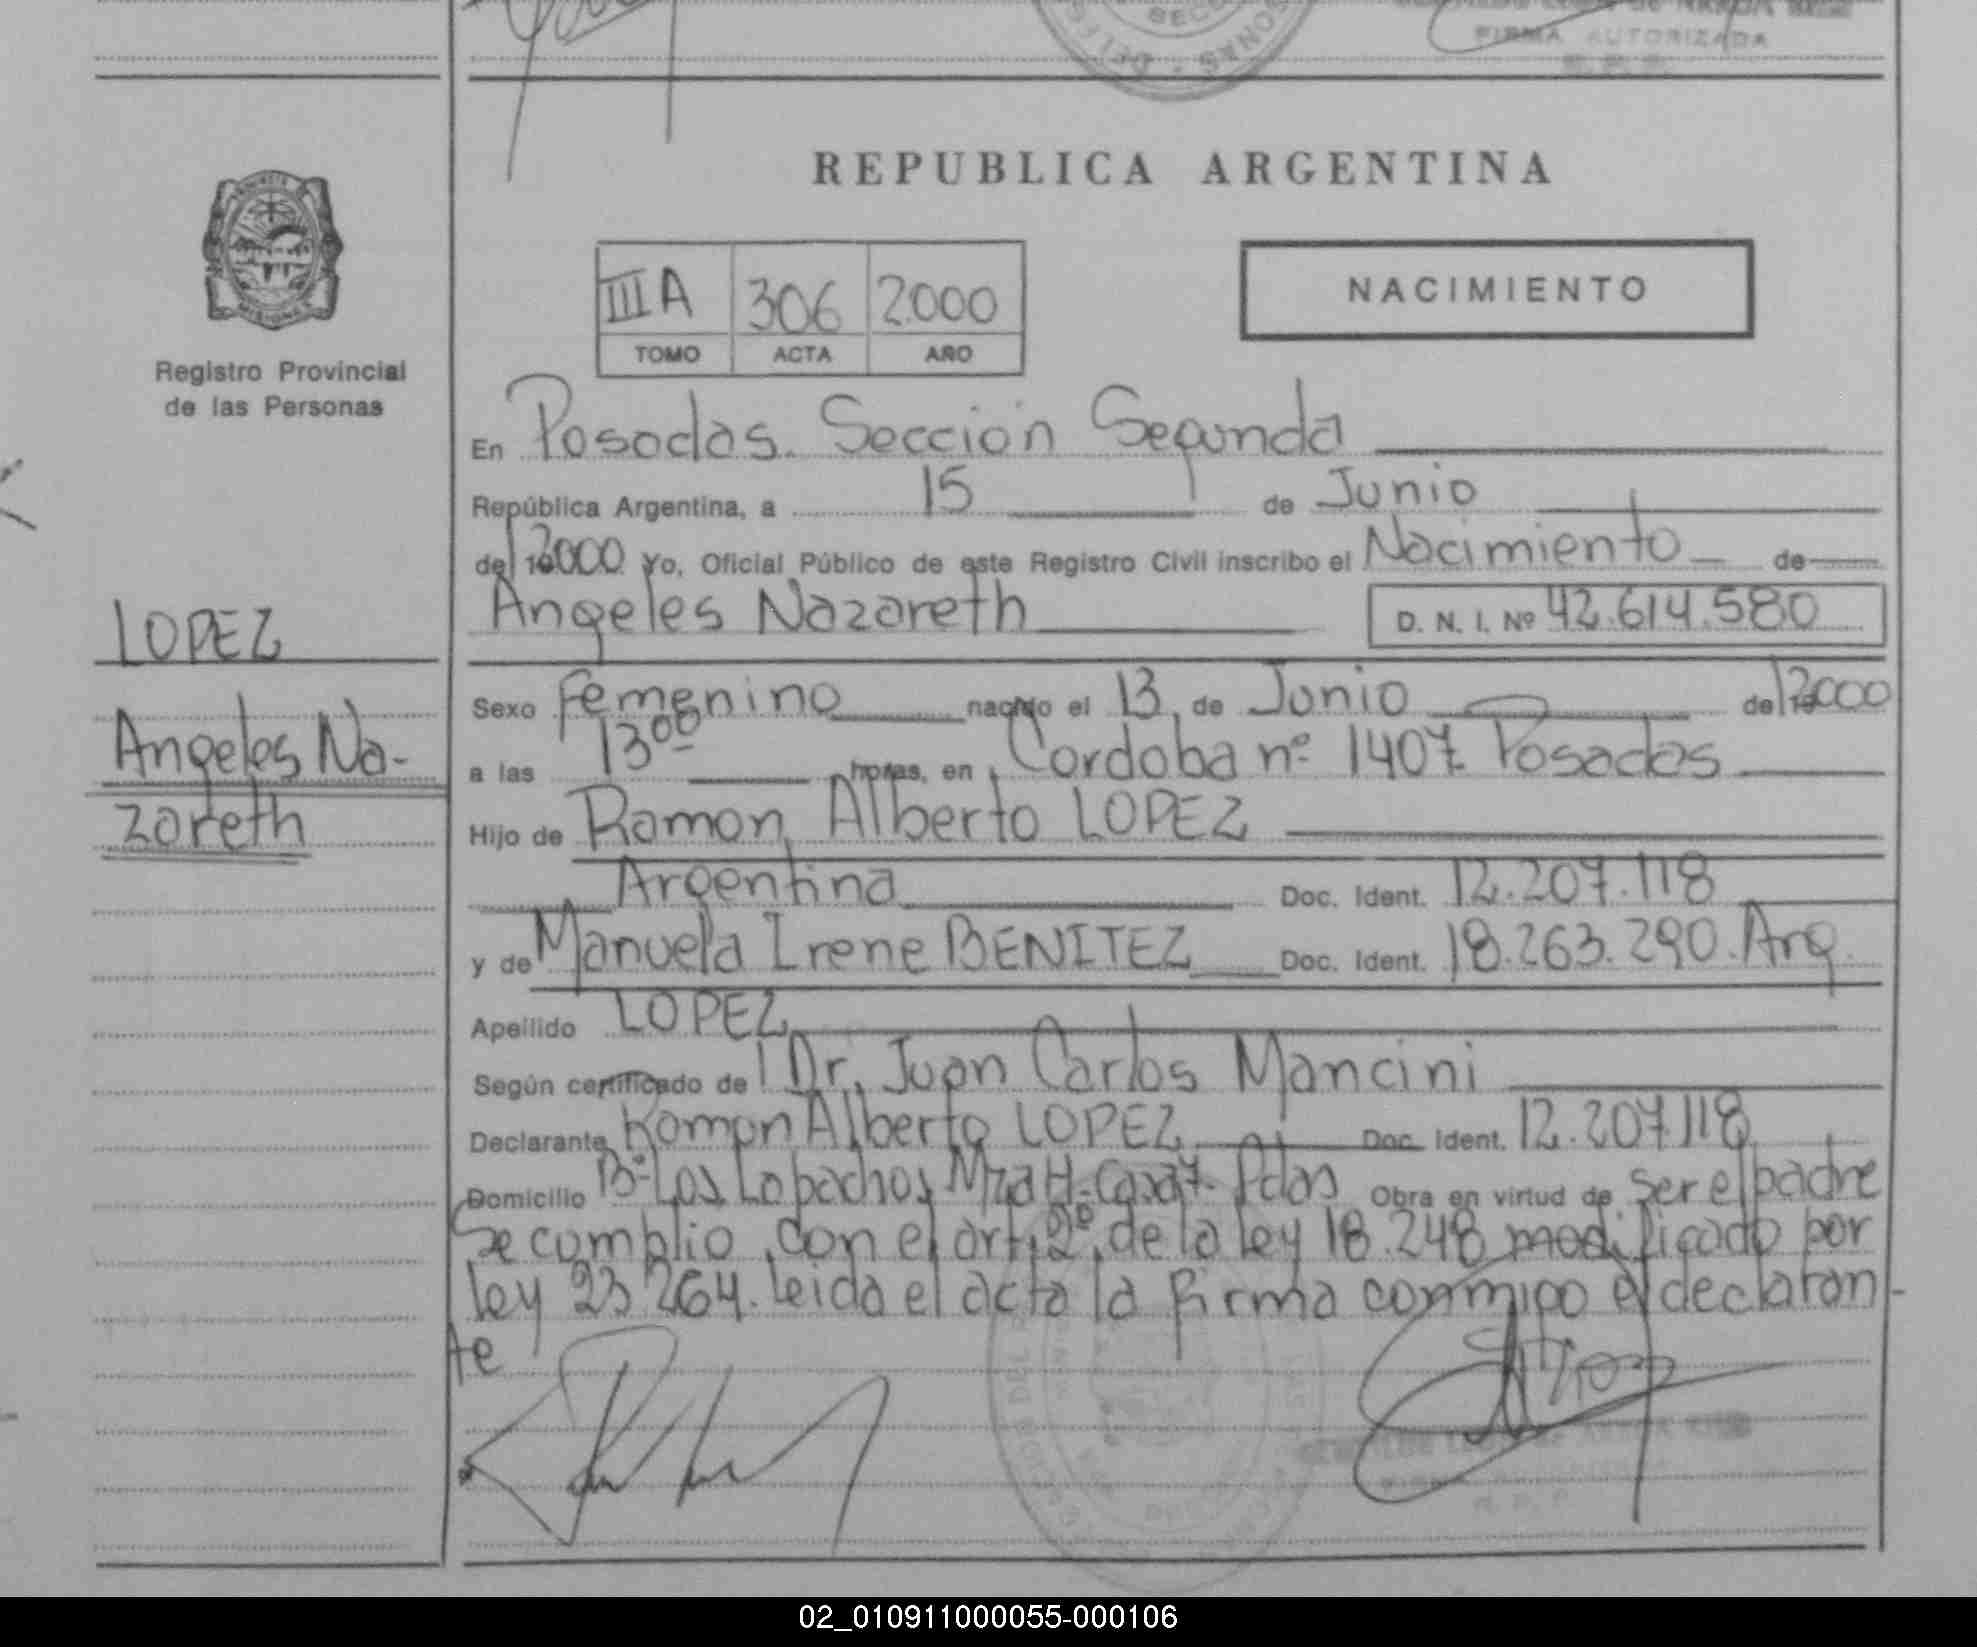 FIRMA AUTORIZADA
REPUBLICA ARGENTINA
IIIA 306 2000
TOMO ACTA AÑO
NACIMIENTO
Registro Provincial
de las Personas
En Posadas. Sección Segunda
República Argentina, a 15 de Junio
de 2000 Yo, Oficial Público de este Registro Civil inscribo el Nacimiento de
Angeles Nazareth D. N. I. Nº 42.614.580
LOPEZ
Angeles Na-
zareth
Sexo Femenino nacido el 13 de Junio de 2000
a las 13 00 horas, en Cordoba nº 1407 Posadas
Hijo de Ramon Alberto LOPEZ
Argentina Doc. Ident. 12.207.118
y de Manuela Irene BENITEZ Doc. Ident. 18.263.290. Arg.
Apellido LOPEZ
Según certificado de Dr. Juan Carlos Mancini
Declarante Ramon Alberto LOPEZ Doc. Ident. 12.207.118
Domicilio Bº Los Lapachos Mza H-Casa 7- Pdas Obra en virtud de ser el padre
Se cumplio con el art. 2º de la ley 18.248 modificado por
ley 23 264. leida el acta la firma conmigo el declaran-
te
02_010911000055-000106